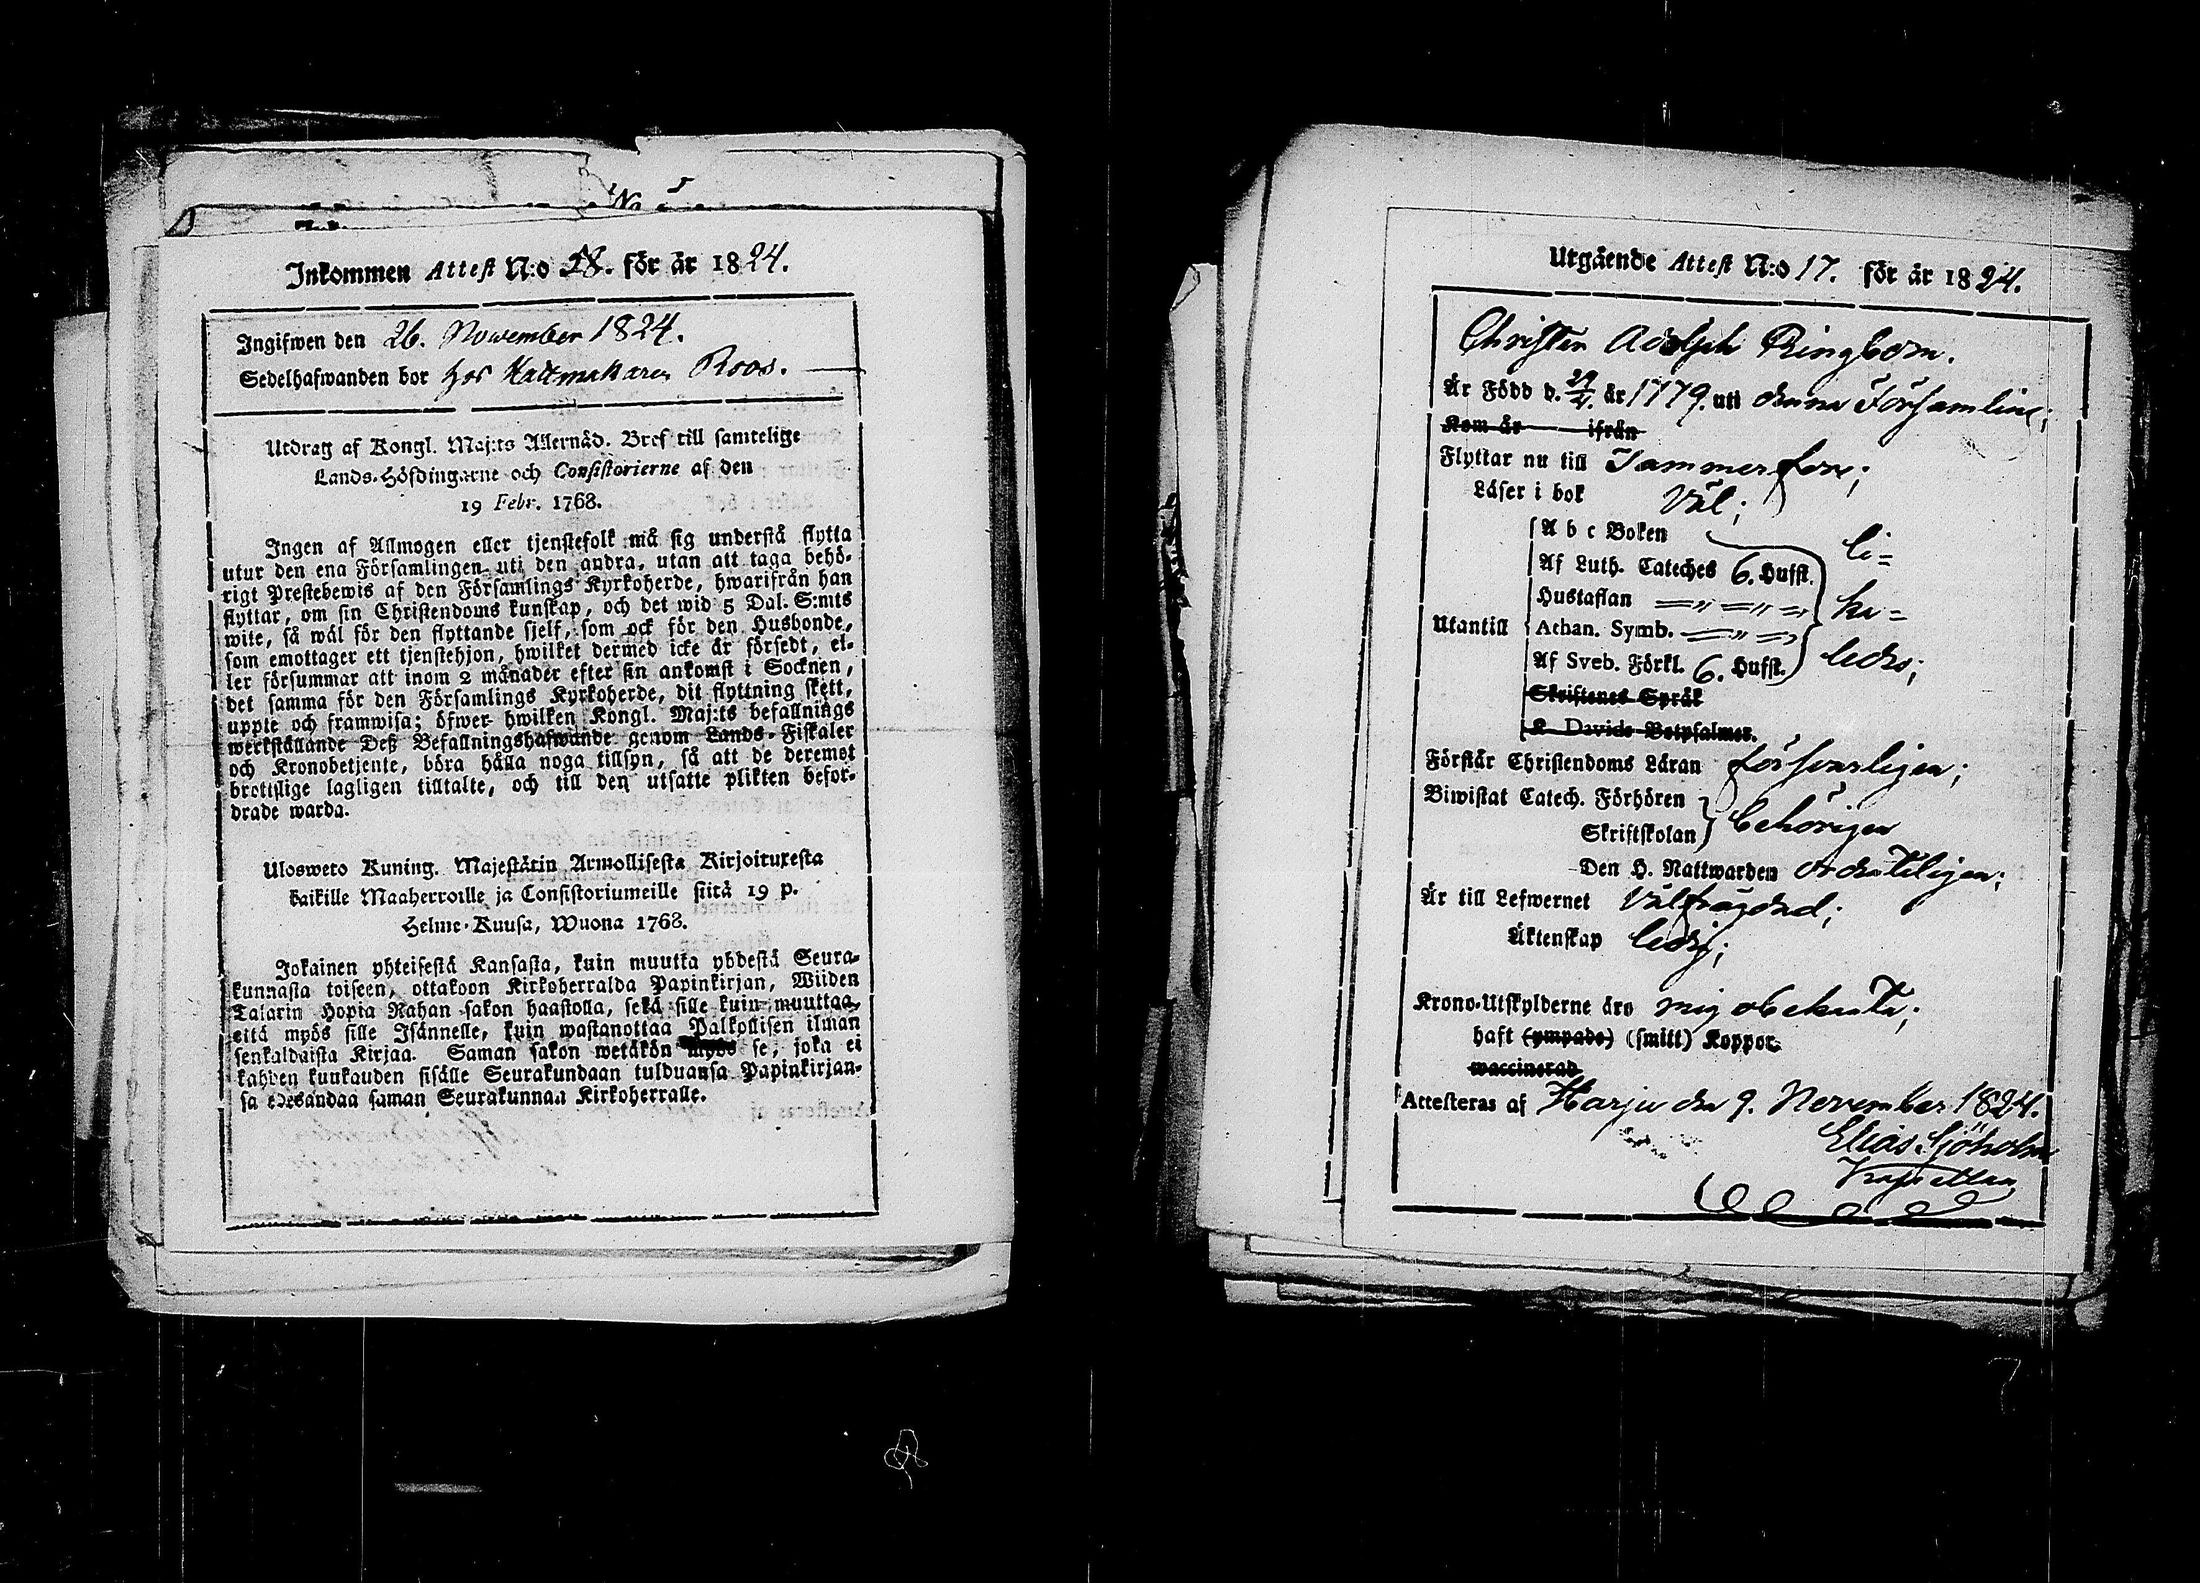 Inkommen Attest N:o 58. för år 1824.
Ingifwen den 26. November 1824.
Sedelhafwanden bor hos Hattmakaren Roos.
Utdrag af Kongl. Maj:ts Allernåd. Bref till samtelige
Lands-Höfdingarne och Consistorierne af den
19 Febr. 1768.
Ingen af Allmogen eller tjenstefolk må sig understå flytta
utur den ena Församlingen uti den andra, utan att taga behö-
rigt Prestebewis af den Församlings Kyrkoherde, hwarifrån han
flyttar, om sin Christendoms kunskap, och det wid 5 Dal. S:mts
wite, så wäl för den flyttande sjelf, som ock för den Husbonde,
som emottager ett tjenstehjon, hwilket dermed icke är försedt, el-
ler försummar att inom 2 månader efter sin ankomst i Socknen,
det samma för den Församlings Kyrkoherde, dit flyttning skett,
uppte och framwisa; öfwer hwilken Kongl. Maj:ts befallnings
werkställande Deß Befallningshafwande genom Lands-Fiskaler
och Kronobetjente, böra hålla noga tillsyn, så att de deremot
brottslige lagligen tilltalte, och till den utsatte plikten befor-
drade warda.
Ulosweto Kuning. Majestätin Armollisesta Kirjoituxesta
kaikille Maaherroille ja Consistoriumeille siitä 19 p.
Helme-Kuusa, Wuona 1768.
Jokainen yhteisestä Kansasta, kuin muutta yhdestä Seura-
kunnasta toiseen, ottakoon Kirkoherralda Papinkirjan, Wiiden
Talarin Hopia Rahan sakon haastolla, sekä sille kuin muuttaa,
että myös sille Isännelle, kuin wastanottaa Palkollisen ilman
senkaldaista Kirjaa. Saman sakon wetäkön myös se, joka ei
kahden kuukauden sisälle Seurakundaan tulduansa Papinkirjan-
sa edesandaa saman Seurakunnan Kirkoherralle.
Utgående Attest N:o 17. för år 1824.
Christer Adolph Ringbom.
Är Född d. 29/4. år 1779. uti denna Församling;
Kom år ifrån
Flyttar nu till Tammerfors;
Läser i bok Väl;
Utantill
A b c Boken
Af Luth. Cateches 6. Hufst.
Hustaflan
Athan. Symb.
Af Sveb. Förkl. 6. Hufst.
li=
ka=
ledes;
Skriftenes Språk
K Davids Botpsalmer.
Förstår Christendoms Läran försvarligen;
Biwistat Catech. Förhören
Skriftskolan behörigen
Den H. Nattwarden ordenteligen;
Är till Lefwernet Välfrägdad;
Äktenskap ledig;
Krono-Utskylderne äro mig obekanta;
haft (ympade) (smitt) Koppor.
waccinerad
Attesteras af Harju den 9. November 1824.
Elias Sjöholm
Kapellan